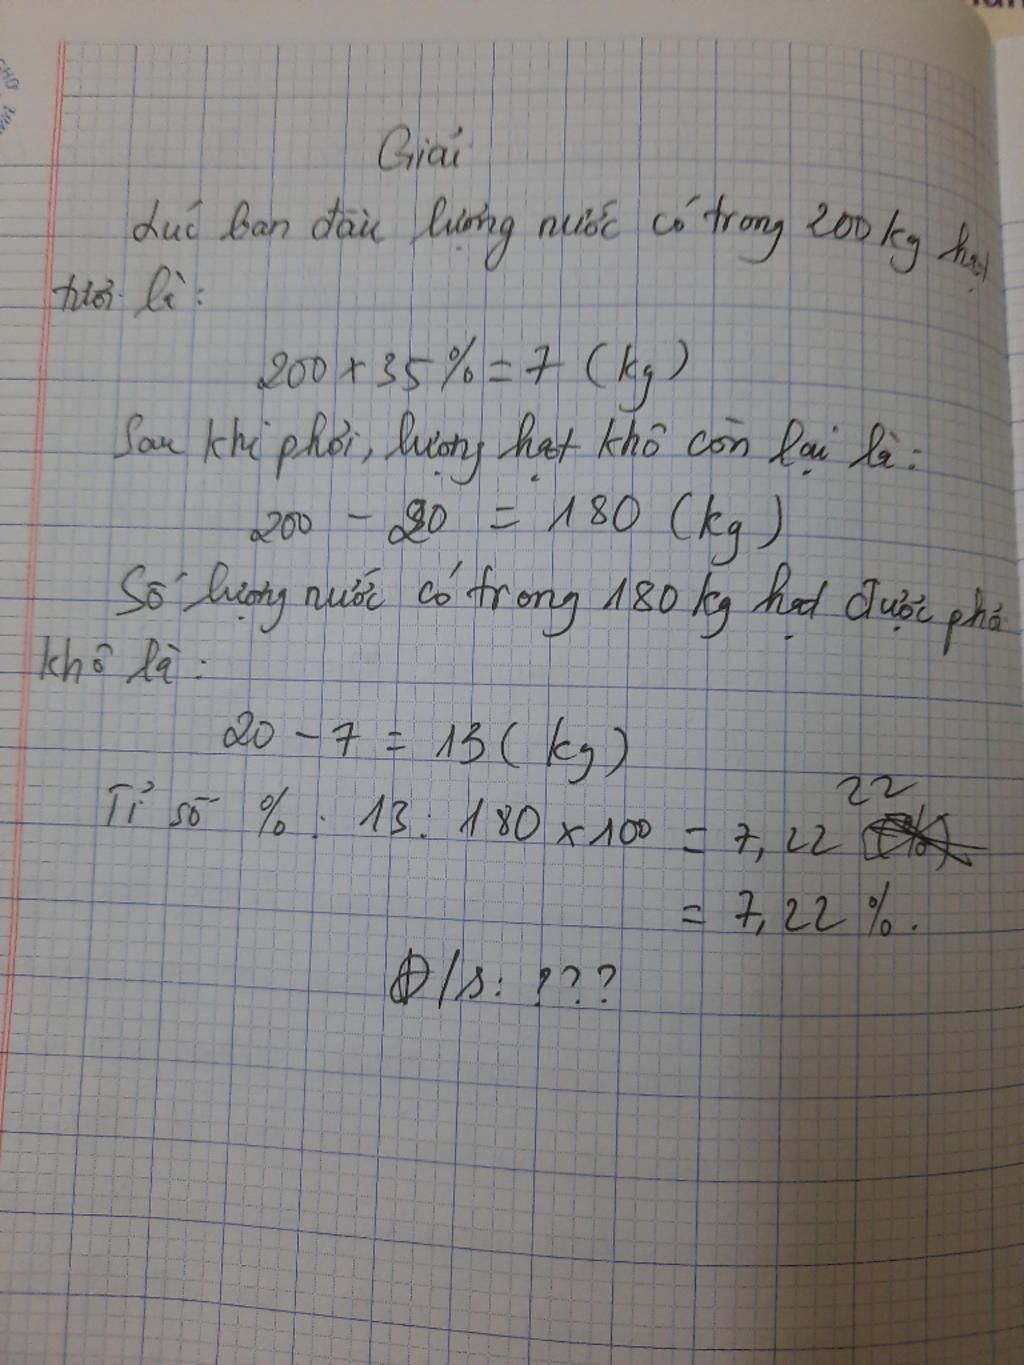 Giải
Lúc ban đầu lượng nước có trong 200 kg hạt
tươi là:
200 x 35 % = 7 (kg)
Sau khi phơi, lượng hạt khô còn lại là:
200 - 20 = 180 (kg)
Số lượng nước có trong 180 kg hạt được phơ
khô là:
20 - 7 = 13 ( kg)
22
Tỉ số % : 13 : 180 x 100 = 7,22
= 7,22 %.
Đ/s: ???